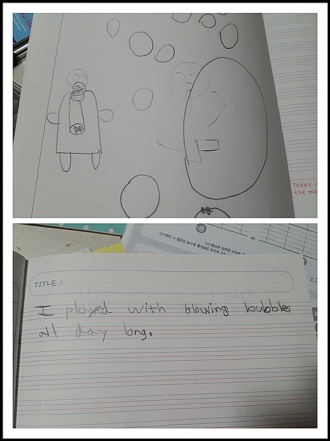 Today
the m
TITLE:
I played with blowing bubbles
all day long.